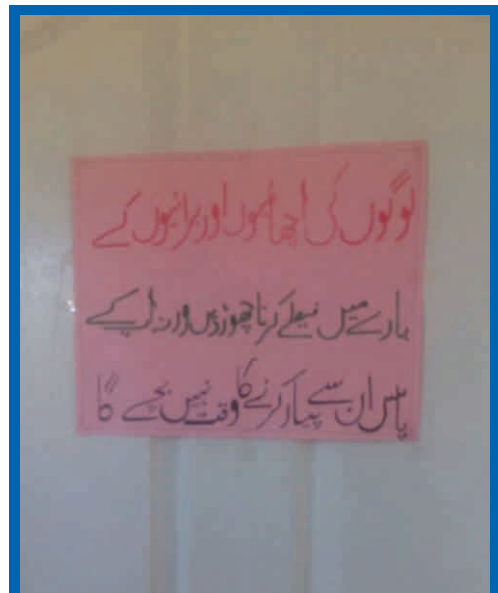 لوگوں کی اچھائیوں اور برائیوں کے
بارے میں فیصلے کرنا چھوڑ دیں ورنہ آپ کے
پاس ان سے پیار کرنے کا وقت نہیں بچے گا